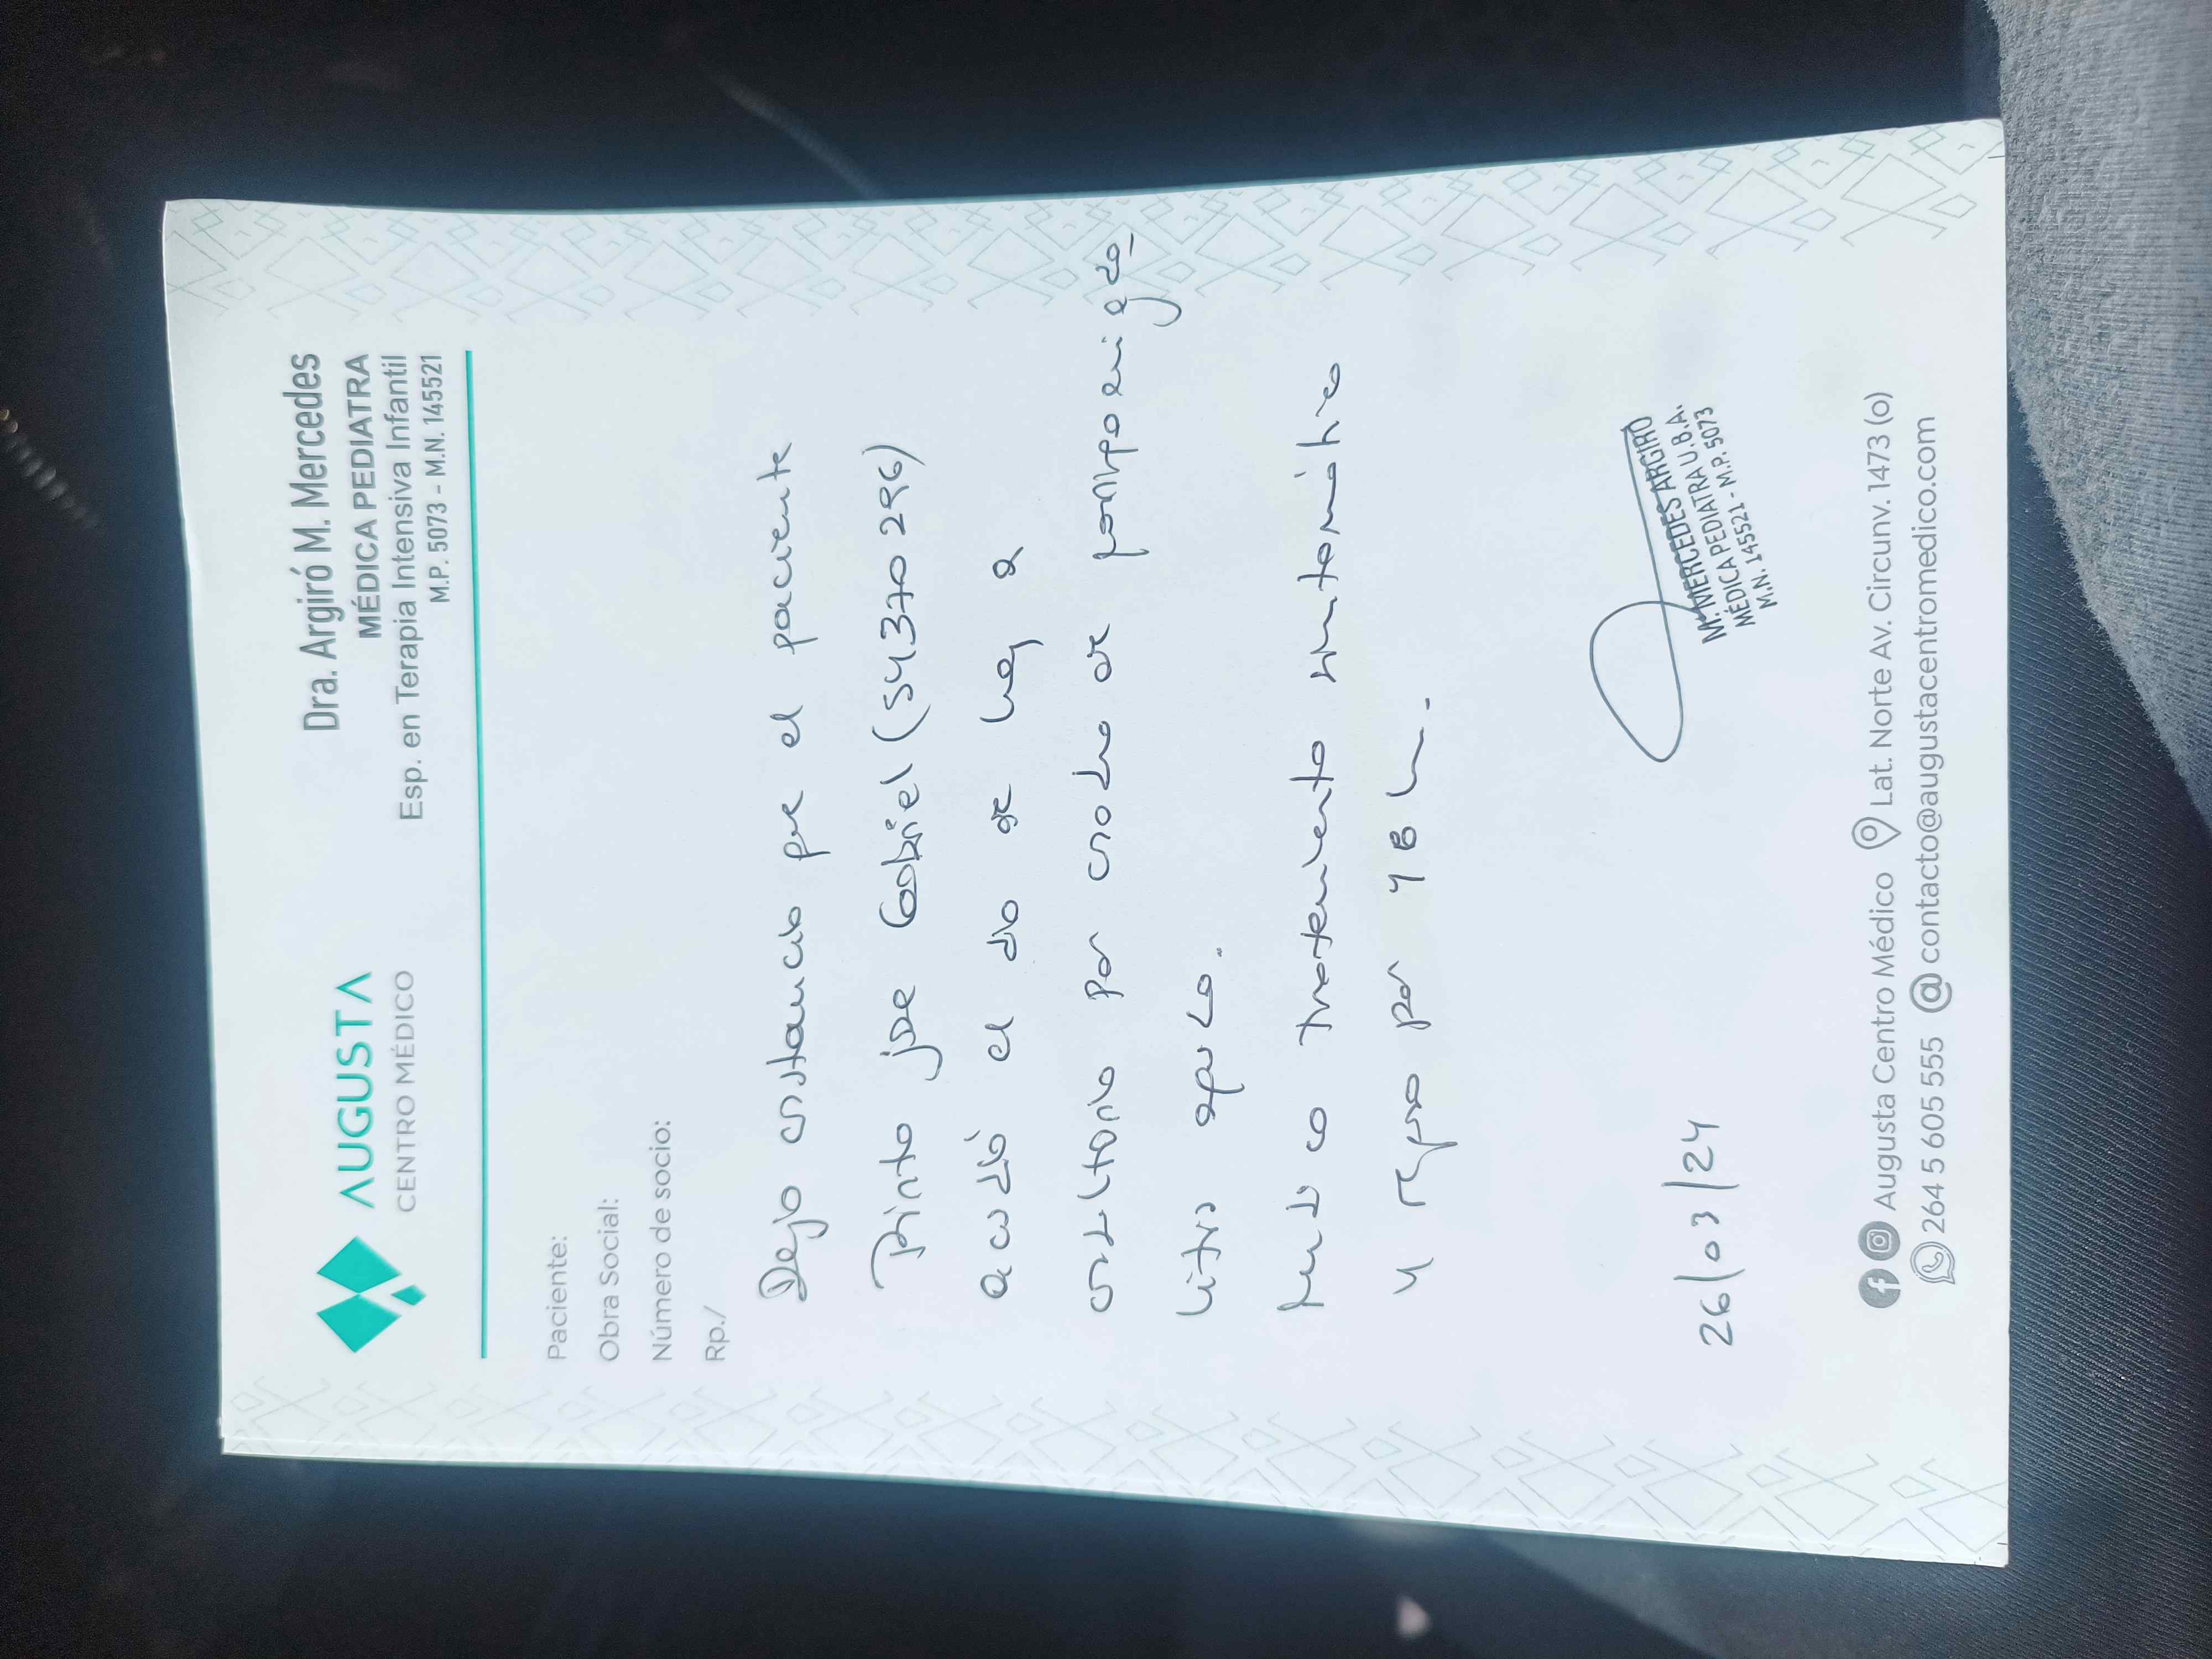 AUGUSTA
CENTRO MÉDICO
Dra. Argiró M. Mercedes
MÉDICA PEDIATRA
Esp. en Terapia Intensiva Infantil
M.P. 5073 - M.N. 145521
Paciente:
Obra Social:
Número de socio:
Rp./
Dejo constancia que el paciente
Pinto jose Gabriel (54370296)
acudió el dia de hoy a
consultorio por cuadro de faringoamigda
litis aguda.
queda co tratamiento sintomático
y reposo por 48 h.
26/03/24
M. MERCEDES ARGIRO
MÉDICA PEDIATRA U.B.A.
M.N. 145521 - M.P. 5073
Augusta Centro Médico Lat. Norte Av. Circunv. 1473 (o)
264 5 605 555 @ contacto@augustacentromedico.com